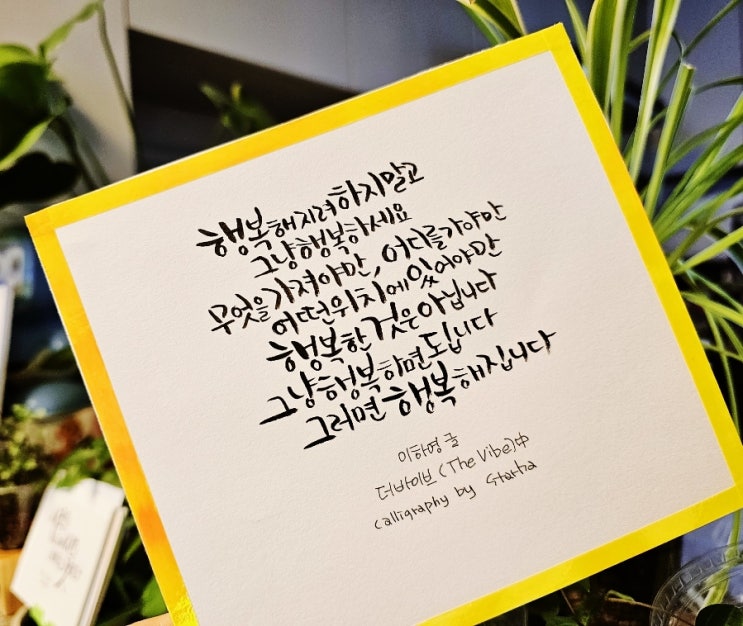 행복해지려하지말고
그냥행복하세요
무엇을가져야만, 어디를가야만
어떤위치에있어야만
행복한것은아닙니다
그냥행복하면됩니다
그러면행복해집니다
이하영 글
더바이브 (The Vibe)中
Calligraphy by